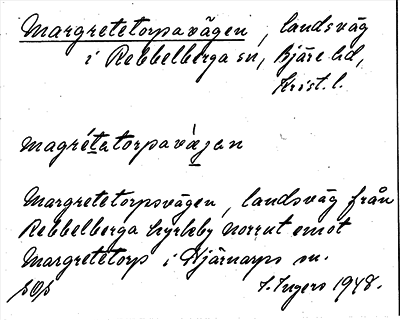 Margretetorpavägen, landsväg
i Rebbelberga sn, Bjäre hd,
Krist. l.
magrétatorpavägen
Margretetorpsvägen, landsväg från
Rebbelberga kyrkby norrut emot
Margretetorp i Hjärnarps sn.
I. Ingers 1948.